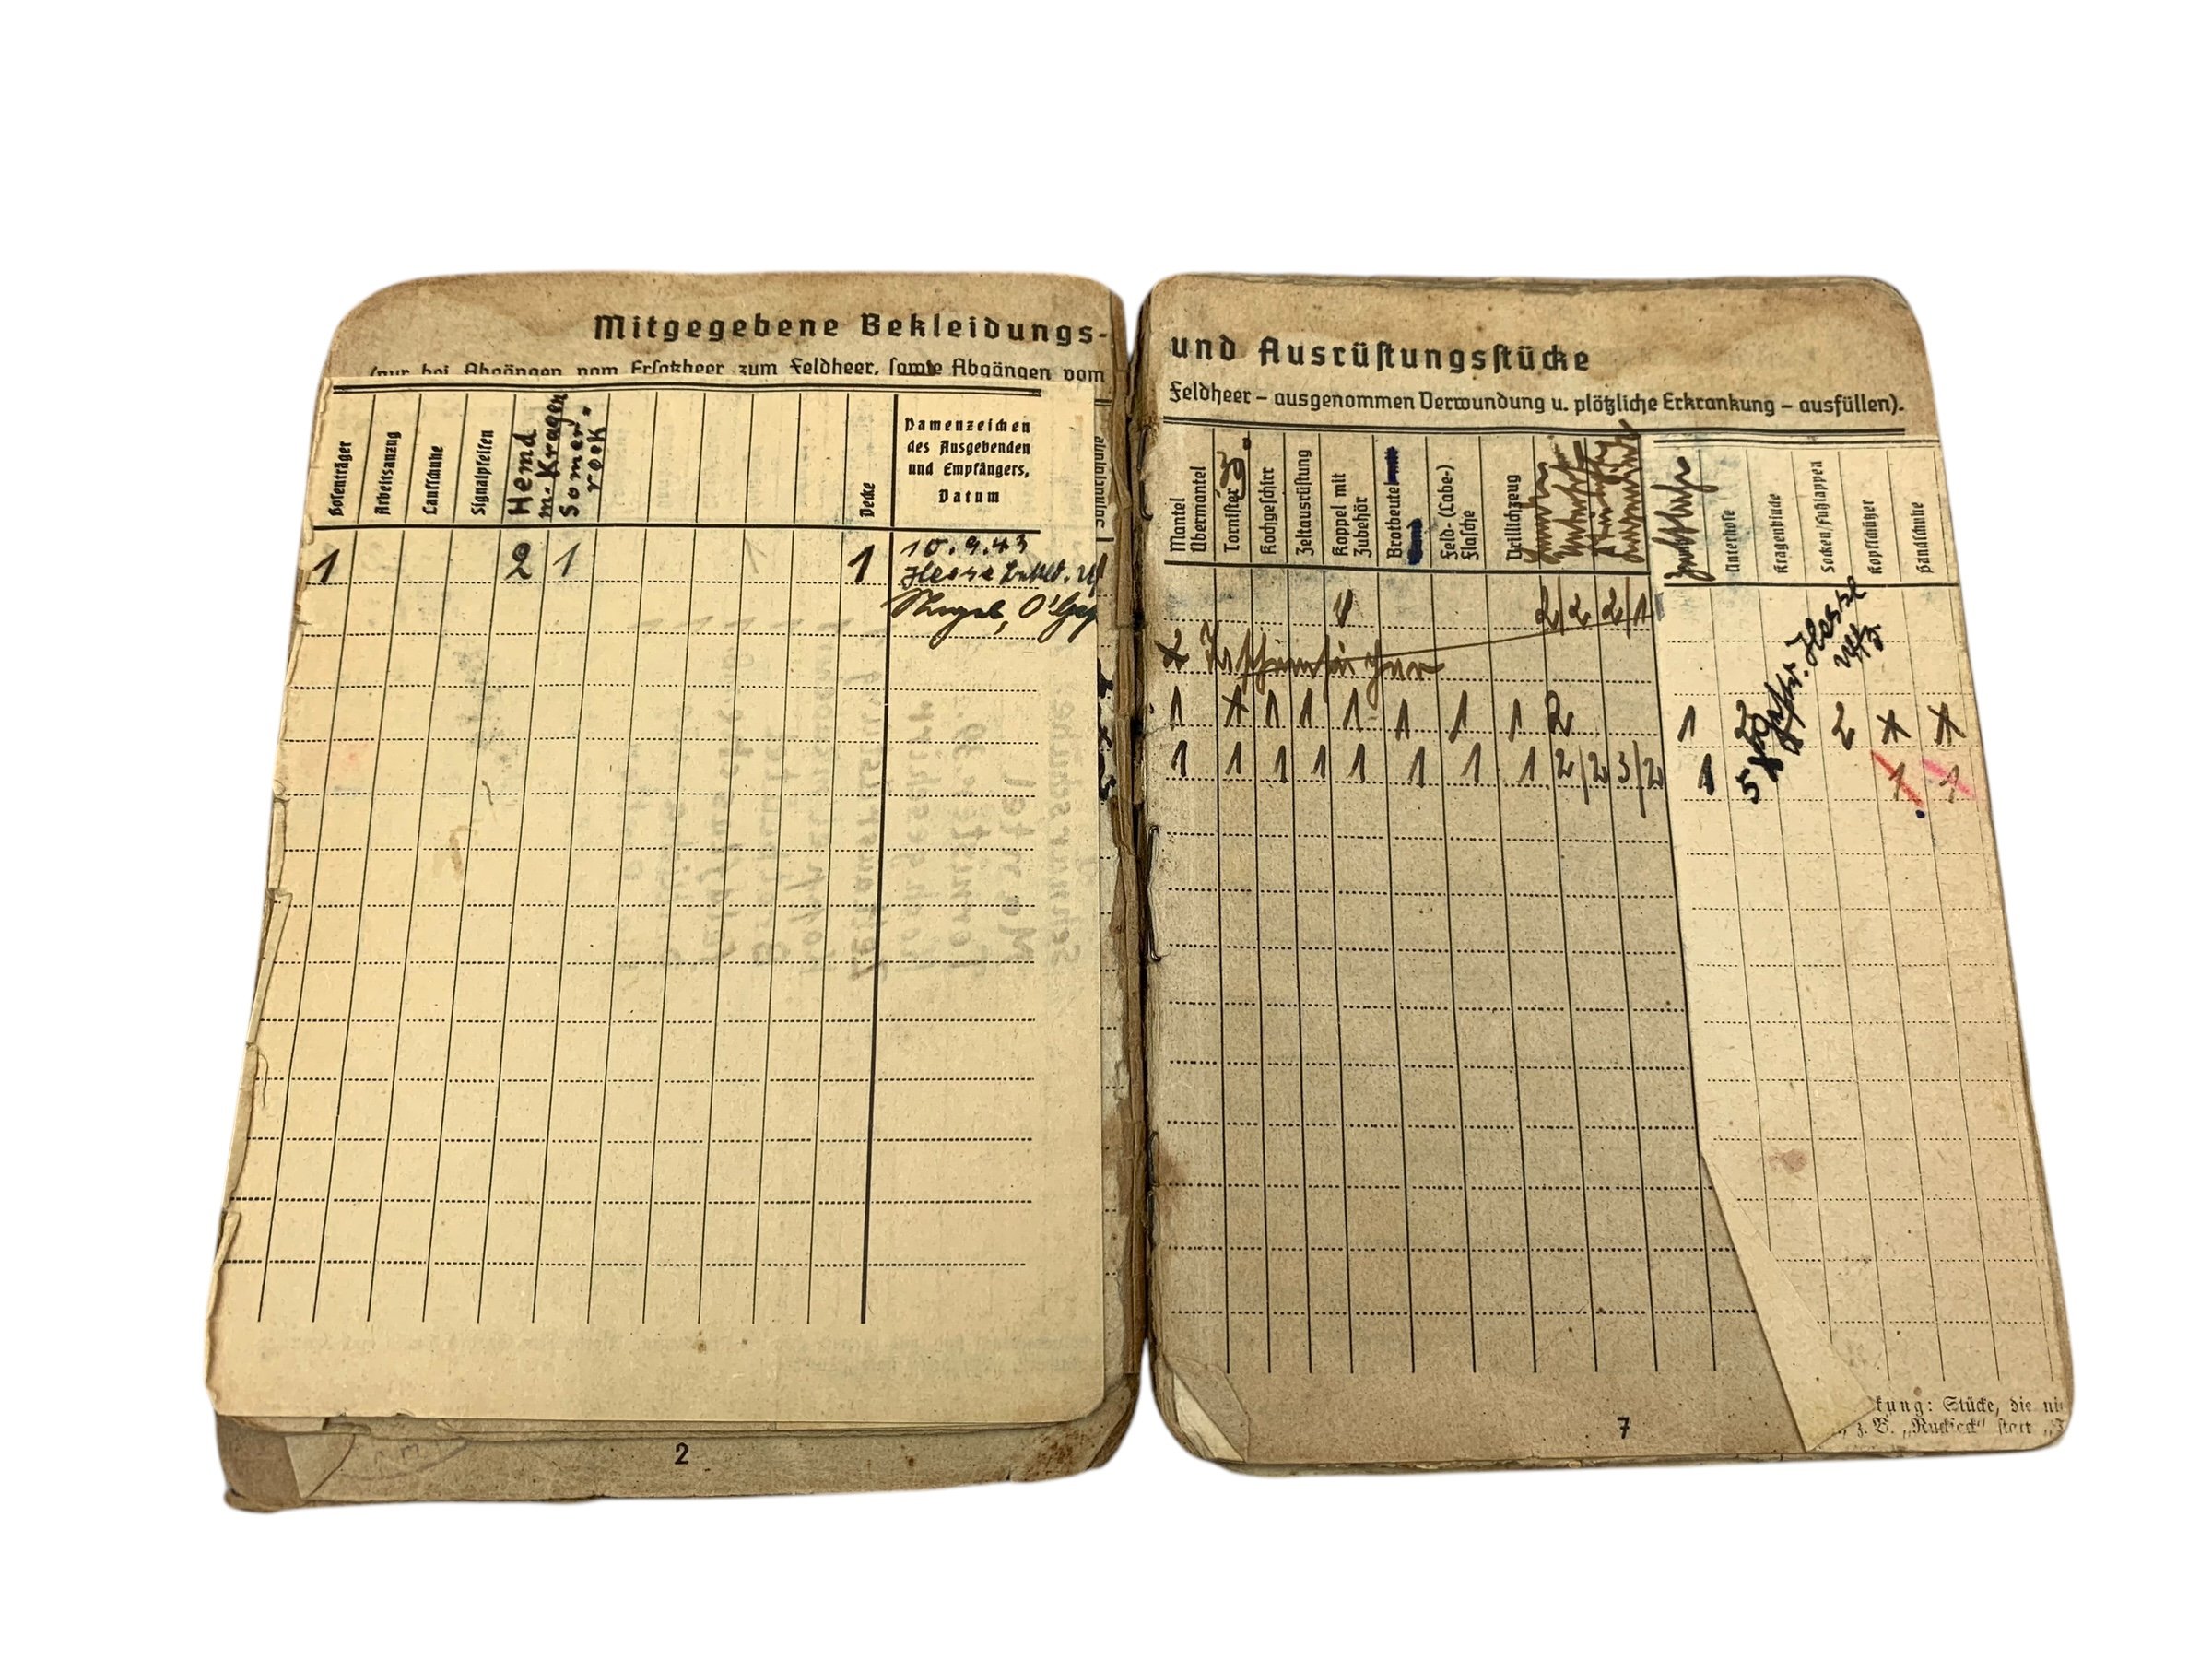 Mitgegebene Bekleidungs-
(nur bei Abgängen vom Ersatzheer zum Feldheer, sowie Abgängen vom
Hosenträger
Arbeitsanzug
Laufschuhe
Signalpfeifen
Hemd
m. Kragen
Sommer-
rock
Decke
Namenzeichen
des Ausgebenden
und Empfängers,
Datum
1 2 1 1 10.9.43
Hesse
2
und Ausrüstungsstücke
Feldheer – ausgenommen Verwundung u. plötzliche Erkrankung – ausfüllen).
Mantel
Übermantel
Tornister
Kochgeschirr
Zeltausrüstung
Koppel mit
Zubehör
Brotbeutel
Band
Feld- (Labe-)
Flasche
Drillichzeug
Unterhose
Kragenbinde
Socken/Fußlappen
Kopfschützer
Handschuhe
2/2 2/1
Hesse
Uffz
1 1 1 1 1 1 1 2 1 2
1 1 1 1 1 1 1 1 2/2 3/2 1 5 1 1
7
kung: Stücke, die ni
z. B. „Rucksack“ statt